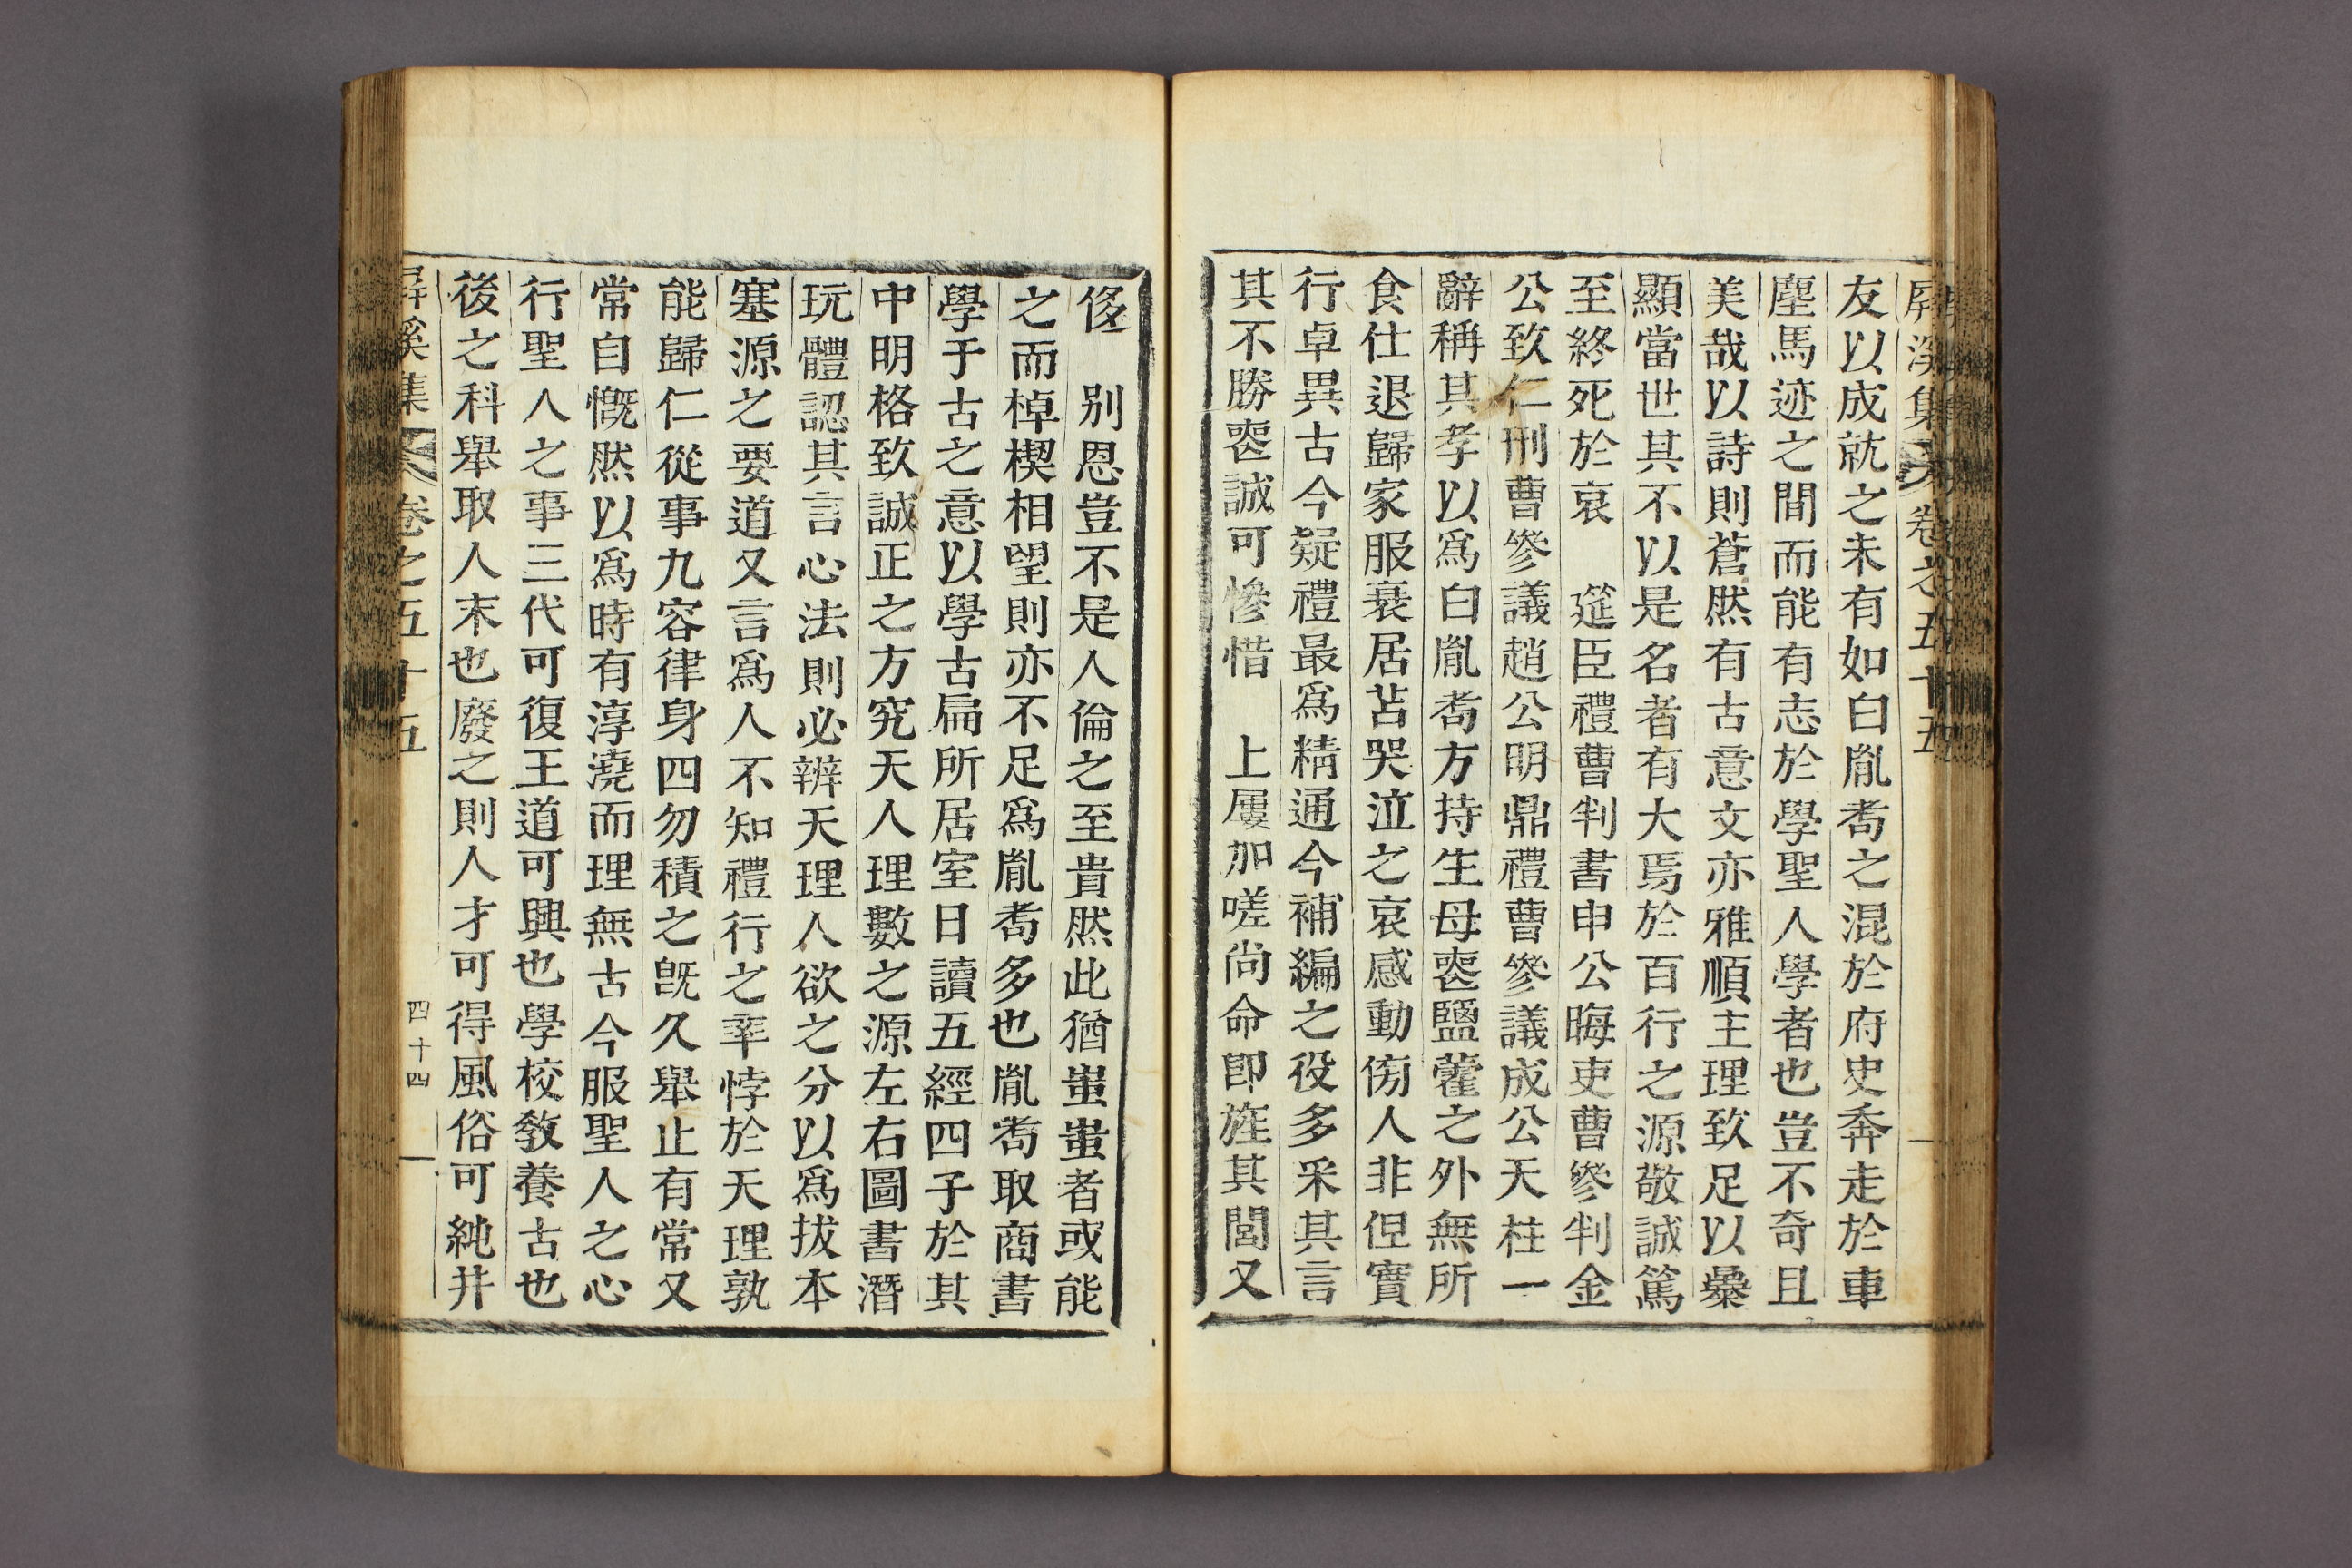 屛溪集 卷之五十五
友以成就之未有如白胤耉之混於府史奔走於車
塵馬迹之間而能有志於學聖人學者也豈不奇且
美哉以詩則蒼然有古意文亦雅順主理致足以㬥
顯當世其不以是名者有大焉於百行之源敬誠篤
至終死於哀 筵臣禮曹判書申公晦吏曹參判金
公致仁刑曹參議趙公明鼎禮曹參議成公天柱一
辭稱其孝以爲白胤耉方持生母喪鹽藿之外無所
食仕退歸家服衰居苫哭泣之哀感動傍人非但實
行卓異古今疑禮最爲精通今補編之役多采其言
其不勝喪誠可慘惜 上屢加嗟尙命卽旌其閭又
侈 別恩豈不是人倫之至貴然此猶蚩蚩者或能
之而棹楔相望則亦不足爲胤耉多也胤耉取商書
學于古之意以學古扁所居室日讀五經四子於其
中明格致誠正之方究天人理數之源左右圖書潛
玩體認其言心法則必辨天理人欲之分以爲拔本
塞源之要道又言爲人不知禮行之率悖於天理孰
能歸仁從事九容律身四勿積之旣久舉止有常又
常自慨然以爲時有淳澆而理無古今服聖人之心
行聖人之事三代可復王道可興也學校敎養古也
後之科舉取人末也廢之則人才可得風俗可純井
屛溪集 卷之五十五 四十四